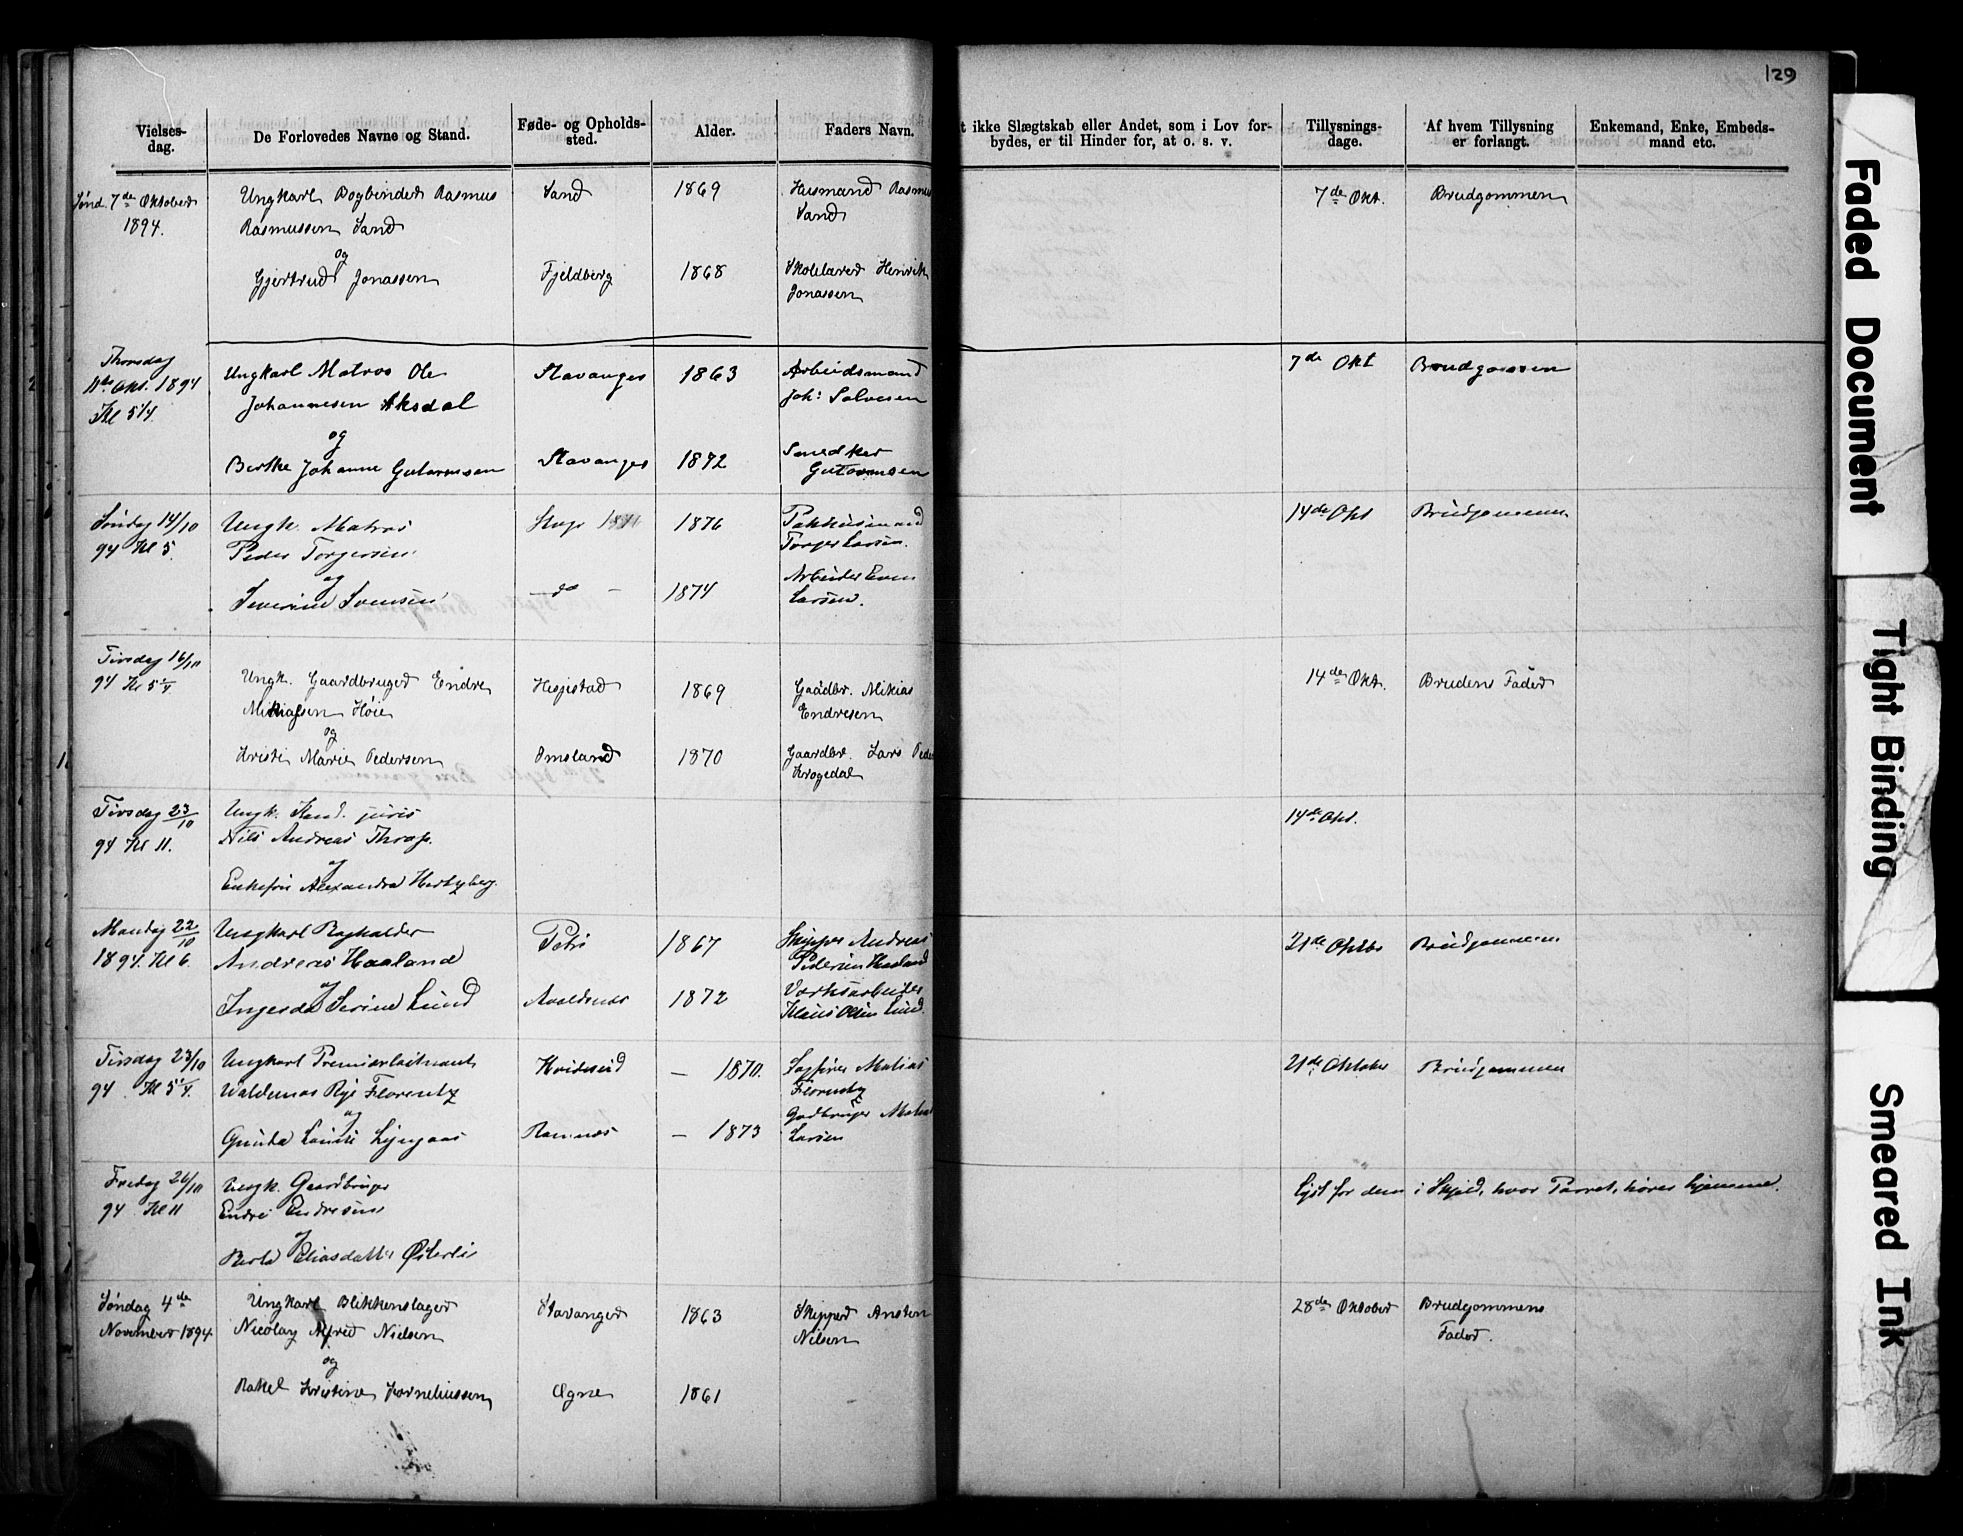 129
Vielses-
dag.
De Forlovedes Navne og Stand.
Føde- og Opholds-
sted.
Alder.
Faders Navn.
t ikke Slægtskab eller Andet, som i Lov for-
bydes, er til Hinder for, at o. s. v.
Tillysnings-
dage.
Af hvem Tillysning
er forlangt.
Enkemand, Enke, Embeds-
mand etc.
Sønd. 7de Oktober
1894.
Ungkarl Bogbinder Rasmus
Rasmussen Sand
og
Gjertrud Jonassen
Sand
Fjeldberg
1869
1868
Husmand Rasmus
Sand
Skolelærer Henrik
Jonassen
7de Okt.
Brudgommen
Thorsdag
11te Okt. 1894
Kl 5¼
Ungkarl Matros Ole
Johannesen Aksdal
og
Berthe Johanne Gutormsen
Stavanger
Stavanger
1863
1872
Arbeidsmand
Joh: Salvesen
Smed
Gutormsen
7de Okt
Brudgommen
Søndag 14/10
94 Kl 5.
Ungk. Matros
Peder Torgersen
og
Severine Svensen
do
1876
1874
Pakhusmand
Torger Larsen.
Arbeider Even
Larsen.
14de Okt
Brudgommen
Tirsdag 16/10
94 Kl 5¼
Ungk. Gaardbruger Endre
Mikiasen Høie
og
Kristi Marie Pedersen
Hegjestad
Omsland
1869
1870
Gaadbr. Mikias
Endresen
Gaardbr. Lars Peder
Krogedal
14de Okt.
Brudens Fader
Tirsdag 23/10
94 Kl 11.
Ungk. Kand. juris
Nils Andreas Thrap.
og
Enkefru Alexandra Hertzberg.
14de Okt.
Mandag 22/10
1894. Kl 6.
Ungkarl Bogholder
Andreas Haaland
og
Serine Lund
Petri
Avaldsnes
1867
1872
Skipper Andreas
Pedersen Haaland
Værksarbeider
Klaus Olsen Lund.
21de Oktbr
Brudgommen
Tirsdag 23/10
94. Kl 5¼.
Ungkarl Premierløitnant
Waldemar Rye Florentz
og
Gunda Louise Lyngaas
Hvidesøid
Ramnes
– 1870.
– 1873
Sagfører Matias
Florentz
Gadbruger Matias
Larsen
21de Oktober
Brudgommen
Fredag 26/10
94 Kl 11
Ungk. Gaardbruger
Endre Endresen
og
Berta Eliasdatter Østerlie
Lyst for dem i Skjold, hvor Parret, hører hjemme.
Søndag 4de
November 1894.
Ungkarl Blikkenslager
Nicolay Alfred Nielsen
og
Rakel Kristine Korneliussen
Stavanger
Ogne
1863
1861
Skipper Ansten
Nilsen
28de Oktober
Brudgommens
Fader.
Faded Document
Tight Binding
Smeared Ink